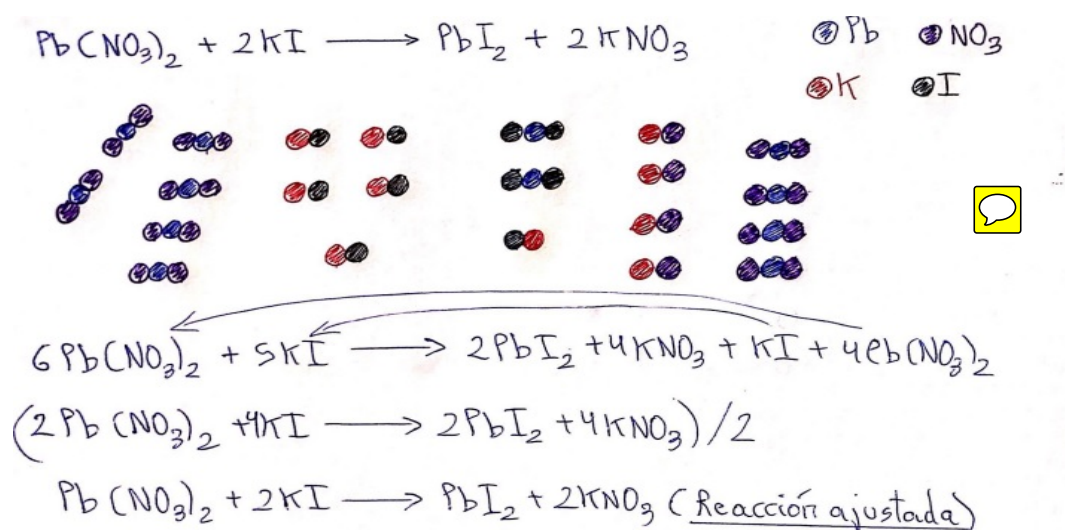 Pb(NO₃)₂ + 2KI ⟶ PbI₂ + 2KNO₃
Pb NO₃
K I
6Pb(NO₃)₂ + 5KI ⟶ 2PbI₂ + 4KNO₃ + KI + 4Pb(NO₃)₂
(2Pb(NO₃)₂ + 4KI ⟶ 2PbI₂ + 4KNO₃)/2
Pb(NO₃)₂ + 2KI ⟶ PbI₂ + 2KNO₃ (Reacción ajustada)